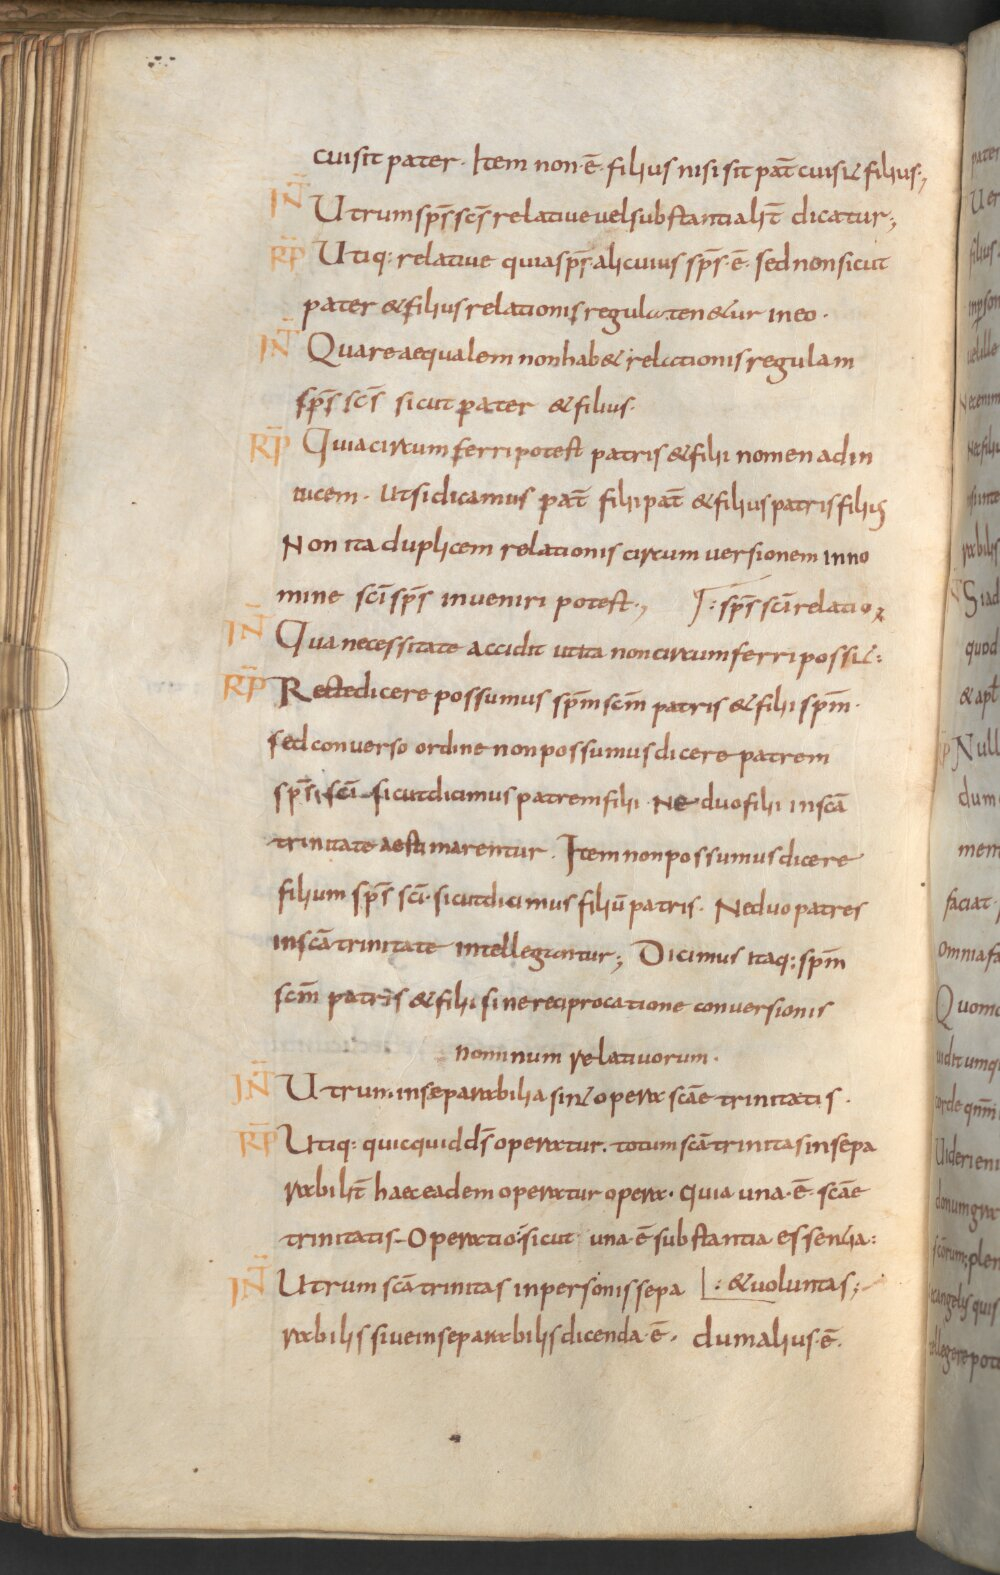 cui sit pater. Item non ÷ē filius nisi sit pat̄ cui sit filius.,
IN̄T Utrum sp̄s sc̄s relative vel substantialit̄ dicatur;
R̄P Utiq: relative quia sp̄s alicuius sp̄s ē. sed non sicut
pater & filius relationis regula ten&ur in eo.
IN̄T Quare aequalem non hab& relationis regulam
sp̄s sc̄s sicut pater & filius.
R̄P Quia circumferri potest patris & filii nomen ad in
vicem. Ut si dicamus pat̄ filii pat̄ & filius patris filius
Non ita duplicem relationis circumversionem in no
mine sc̄i sp̄s inveniri potest., : sp̄s sc̄i relatio
IN̄T Qua necessitate accidit ut ita non circumferri possit:
R̄P Recte dicere possumus sp̄m sc̄m patris & filii sp̄m.
sed converso ordine non possumus dicere patrem
sp̄s sc̄i sicut dicimus patrem filii. Ne duo filii in sc̄a
trinitate aestimarentur. Item non possumus dicere
filium sp̄s sc̄i. sicut dicimus filiū patris. Ne duo patres
in sc̄a trinitate intellegantur; Dicimus itaq: sp̄m
sc̄m patris & filii sine reciprocatione conversionis
nominum relativorum.
IN̄T Utrum inseparabilia sint opera sc̄ae trinitatis.
R̄P Utiq: quicquid d̄s operatur. totum sc̄a trinitas insepa
rabilit̄ haec eadem operatur opera. quia una ē sc̄ae
trinitatis Operatio: sicut una ē substantia essentia:
IN̄T Utrum sc̄a trinitas in personis sepa : & voluntas;
rabilis sive inseparabilis dicenda ē. dum alius ē.